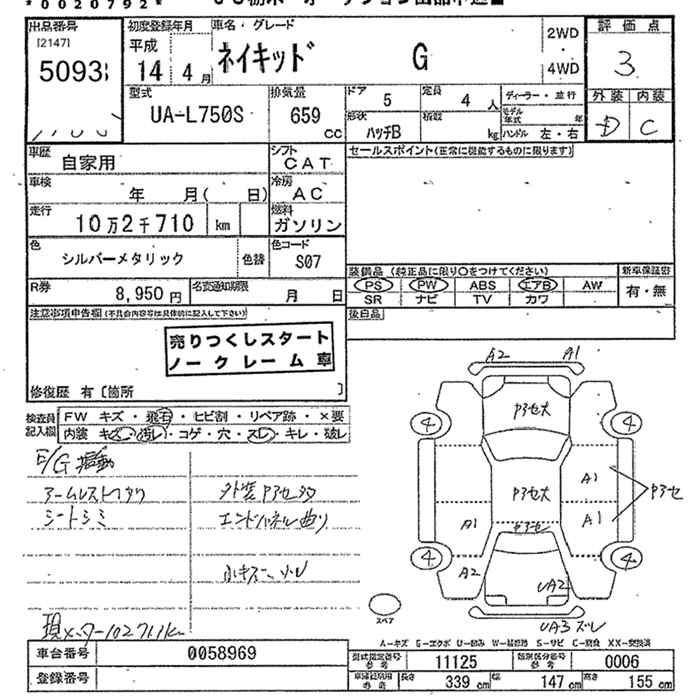 *0020792*
出品番号
[2147]
5093
初度登録年月
平成
14 4月
車名・グレード
ネイキッド G
2WD
4WD
評価点
3
外装 内装
D C
型式
UA-L750S
排気量
659
cc
ドア
5
定員
4 人
ディーラー・並行
形状
ハッチB
積載
kg
モデル年式 年
ハンドル 左・右
車歴
自家用
シフト
CAT
セールスポイント(正常に機能するものに限ります)
車検
年 月( 日)
冷房
AC
走行
10万2千710 km
燃料
ガソリン
色
シルバーメタリック
色替
色コード
S07
装備品 (純正品に限り○をつけてください)
新車保証書
PS PW ABS エアB AW
有・無
SR ナビ TV カワ
R券
8,950 円
名変通知期限
月 日
後日品
注意事項申告欄(不具合内容等は具体的に記入して下さい)
売りつくしスタート
ノークレーム車
修復歴 有〔箇所 〕
検査員
記入欄
FW キズ・飛石・ヒビ割・リペア跡・×要
内装 キズ・汚レ・コゲ・穴・スレ・キレ・破レ
E/G
アームレスト
シートシミ
外装
エンドパネル曲り
A2 A1
4 4
A1
A1
A1
A2
UA2
4 4
UA3 ズレ
スペア
A-キズ G-エクボ U-凹ミ W-補修跡 S-サビ C-腐食 XX-交換済
車台番号
0058969
登録番号
型式指定番号
参考
11125
類別区分番号
参考
0006
長さ
339 cm
幅
147 cm
高さ
155 cm